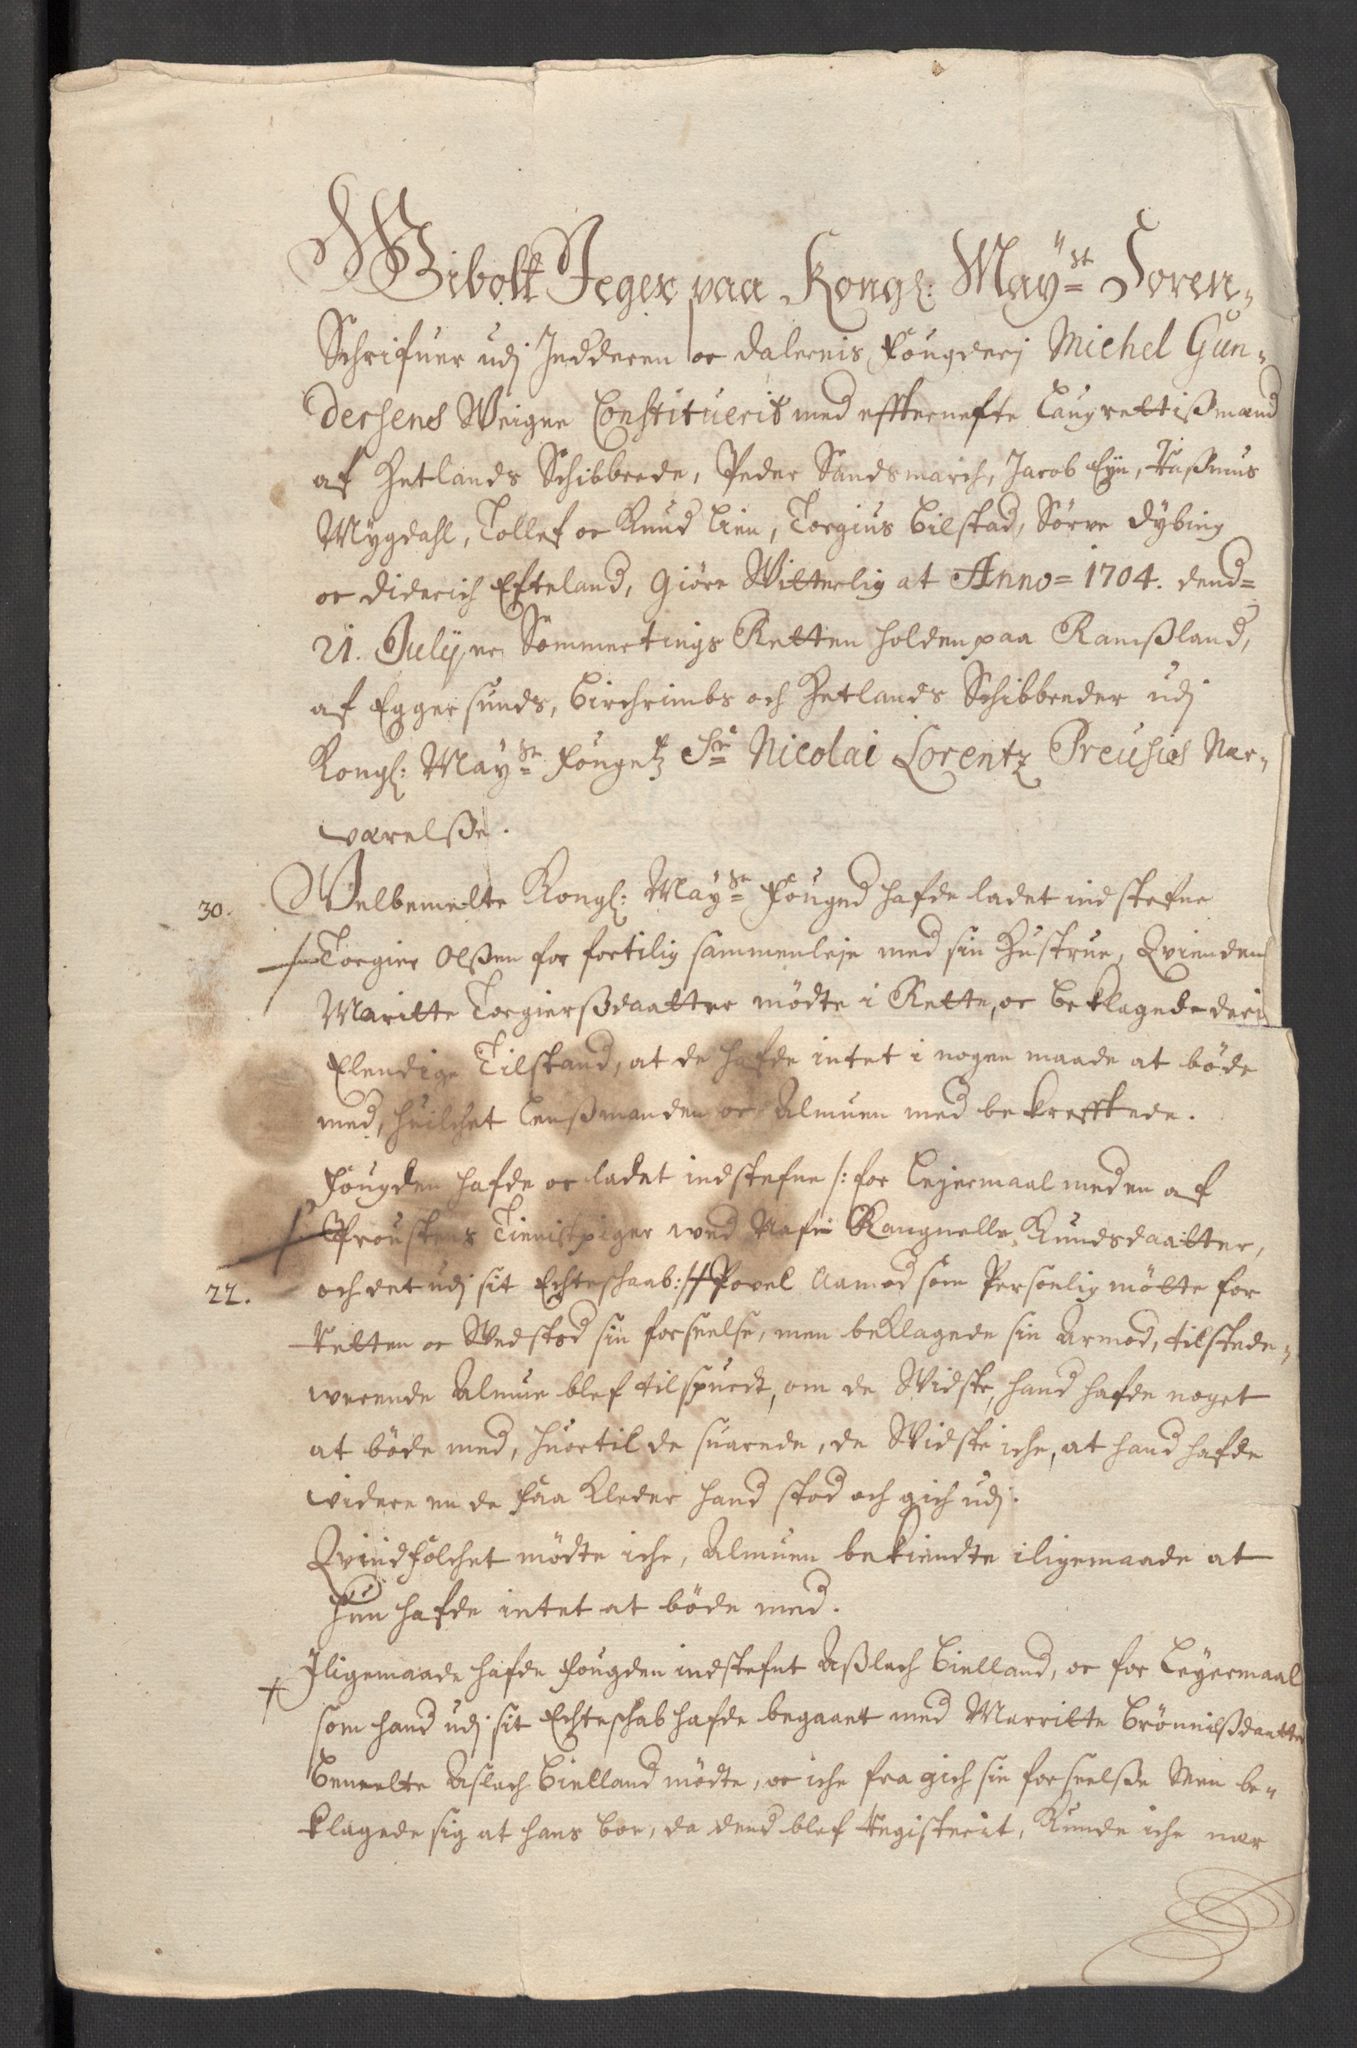 Wibolt Jeger paa Kongl: Mayst Soren-
Schrifuer udj Jedderen oc Dalernis fougderj Michel Gun-
dersens Weigne Constituerit med effternefte Laugrettißmænd
af Hetlands Schibbrede, Peder Sandsmarch, Jacob Eyie, Raßmus
Mygdahl, Tollef oc Knud Lien, Torgius Bilstad, Sørve Dybing
oc Diderich Efteland, Giøre Witterlig at Anno= 1704. dend=
21. Julij, er Sommertings Retten holden paa Ramßland,
af Eggersunds, Birchrimbs och Hetlands Schibbreder udj
Kongl: Mayst fougetz Sr Nicolai Lorentz Preusies Nær-
værelße.
30. Welbemelte Kongl: Mayst fouged hafde ladet indstefne
/ Torgier Olßen for fortilig sammenleje med sin Hustrue, Qvinden
Maritte Torgierßdaatter mødte i Rette, oc beklagede deris
Elendige Tilstand, at de hafde intet i nogen maade at bøde
med, huilchet Lenßmanden oc Almuen med bekrefftede.
fougden hafde oc ladet indstefne /: for Leyermaal med en af
/ Proustens Tienistpiger wed Nafn Rangnelle Knudsdaatter,
22. och det udj sit Echteschaab :/ Povel Aamod som Personlig møtte for
Retten oc Wedstod sin forseelse, men beklagede sin Armod, tilstede-
werende Almue blef tilspurdt, om de Widste, hand hafde noget
at bøde med, huortil de suarede, de Widste iche, at hand hafde
widere en de faa Kleder hand stod och gich udj.
Qvindfolchet mødte iche, Almuen bekiendte iligemaade at
hun hafde intet at bøde med.
+ Iligemaade hafde fougden indstefnt Aßlach Bielland, oc for Leyermaal
som hand udj sit Echteschab hafde begaaet med Marritte Brønnilßdaatter
Bemelte Aslach Bielland mødte, oc iche fra gich sin forseelße Men be-
klagede sig at hans boe, da dend blef Registerit, Kunde iche mer